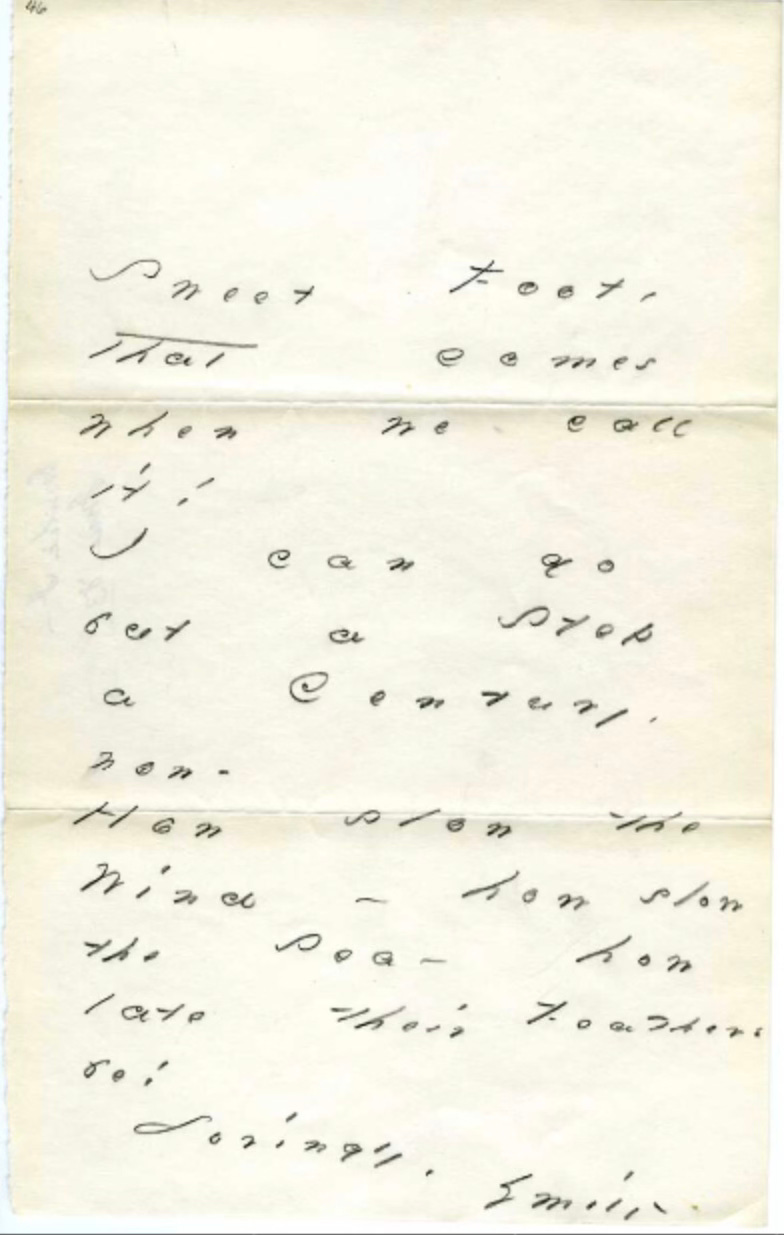 46
Sweet Foot,
that comes
when we call
it!
I can go
but a Step
a Century,
now -
How slow the
Wind - how slow
the Sea - how
late their Feathers
be!
Lovingly,
Emily